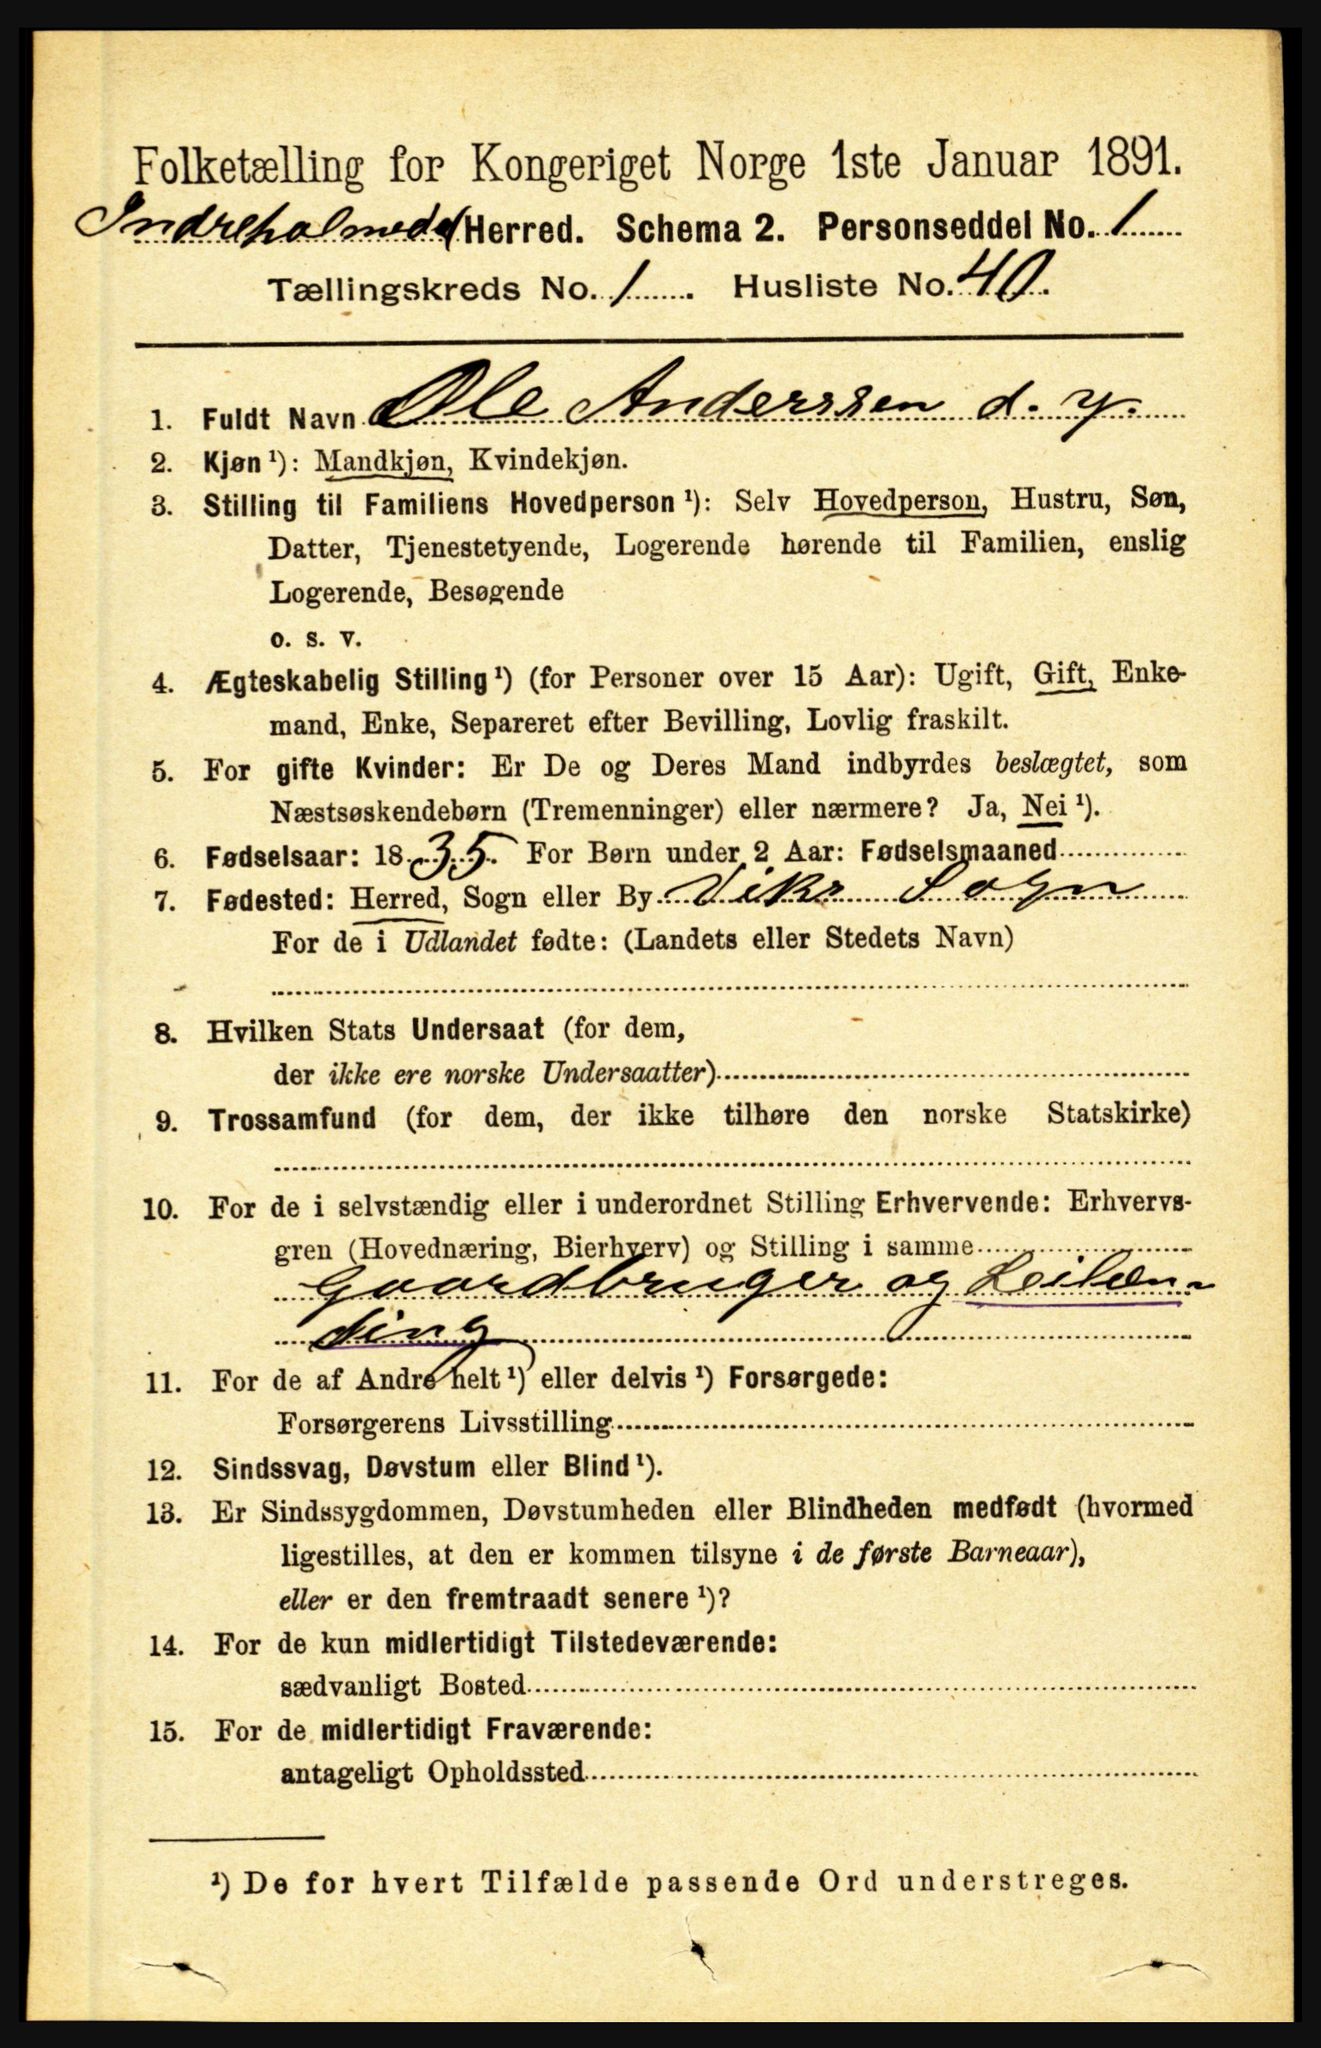 Folketælling for Kongeriget Norge 1ste Januar 1891.
Indreholmedal Herred. Schema 2. Personseddel No. 1
Tællingskreds No. 1. Husliste No. 40.
1. Fuldt Navn Ole Anderssen d. y.
2. Kjøn ¹): Mandkjøn, Kvindekjøn.
3. Stilling til Familiens Hovedperson ¹): Selv Hovedperson, Hustru, Søn,
Datter, Tjenestetyende, Logerende hørende til Familien, enslig
Logerende, Besøgende
o. s. v.
4. Ægteskabelig Stilling ¹) (for Personer over 15 Aar): Ugift, Gift, Enke-
mand, Enke, Separeret efter Bevilling, Lovlig fraskilt.
5. For gifte Kvinder: Er De og Deres Mand indbyrdes beslægtet, som
Næstsøskendebørn (Tremenninger) eller nærmere? Ja, Nei ¹).
6. Fødselsaar: 1835. For Børn under 2 Aar: Fødselsmaaned
7. Fødested: Herred, Sogn eller By Viks Sogn
For de i Udlandet fødte: (Landets eller Stedets Navn)
8. Hvilken Stats Undersaat (for dem,
der ikke ere norske Undersaatter)
9. Trossamfund (for dem, der ikke tilhøre den norske Statskirke)
10. For de i selvstændig eller i underordnet Stilling Erhvervende: Erhvervs-
gren (Hovednæring, Bierhverv) og Stilling i samme
Gaardbruger og Leilæn-
ding
11. For de af Andre helt ¹) eller delvis ¹) Forsørgede:
Forsørgerens Livsstilling
12. Sindssvag, Døvstum eller Blind ¹).
13. Er Sindssygdommen, Døvstumheden eller Blindheden medfødt (hvormed
ligestilles, at den er kommen tilsyne i de første Barneaar),
eller er den fremtraadt senere ¹)?
14. For de kun midlertidigt Tilstedeværende:
sædvanligt Bosted
15. For de midlertidigt Fraværende:
antageligt Opholdssted
¹) De for hvert Tilfælde passende Ord understreges.